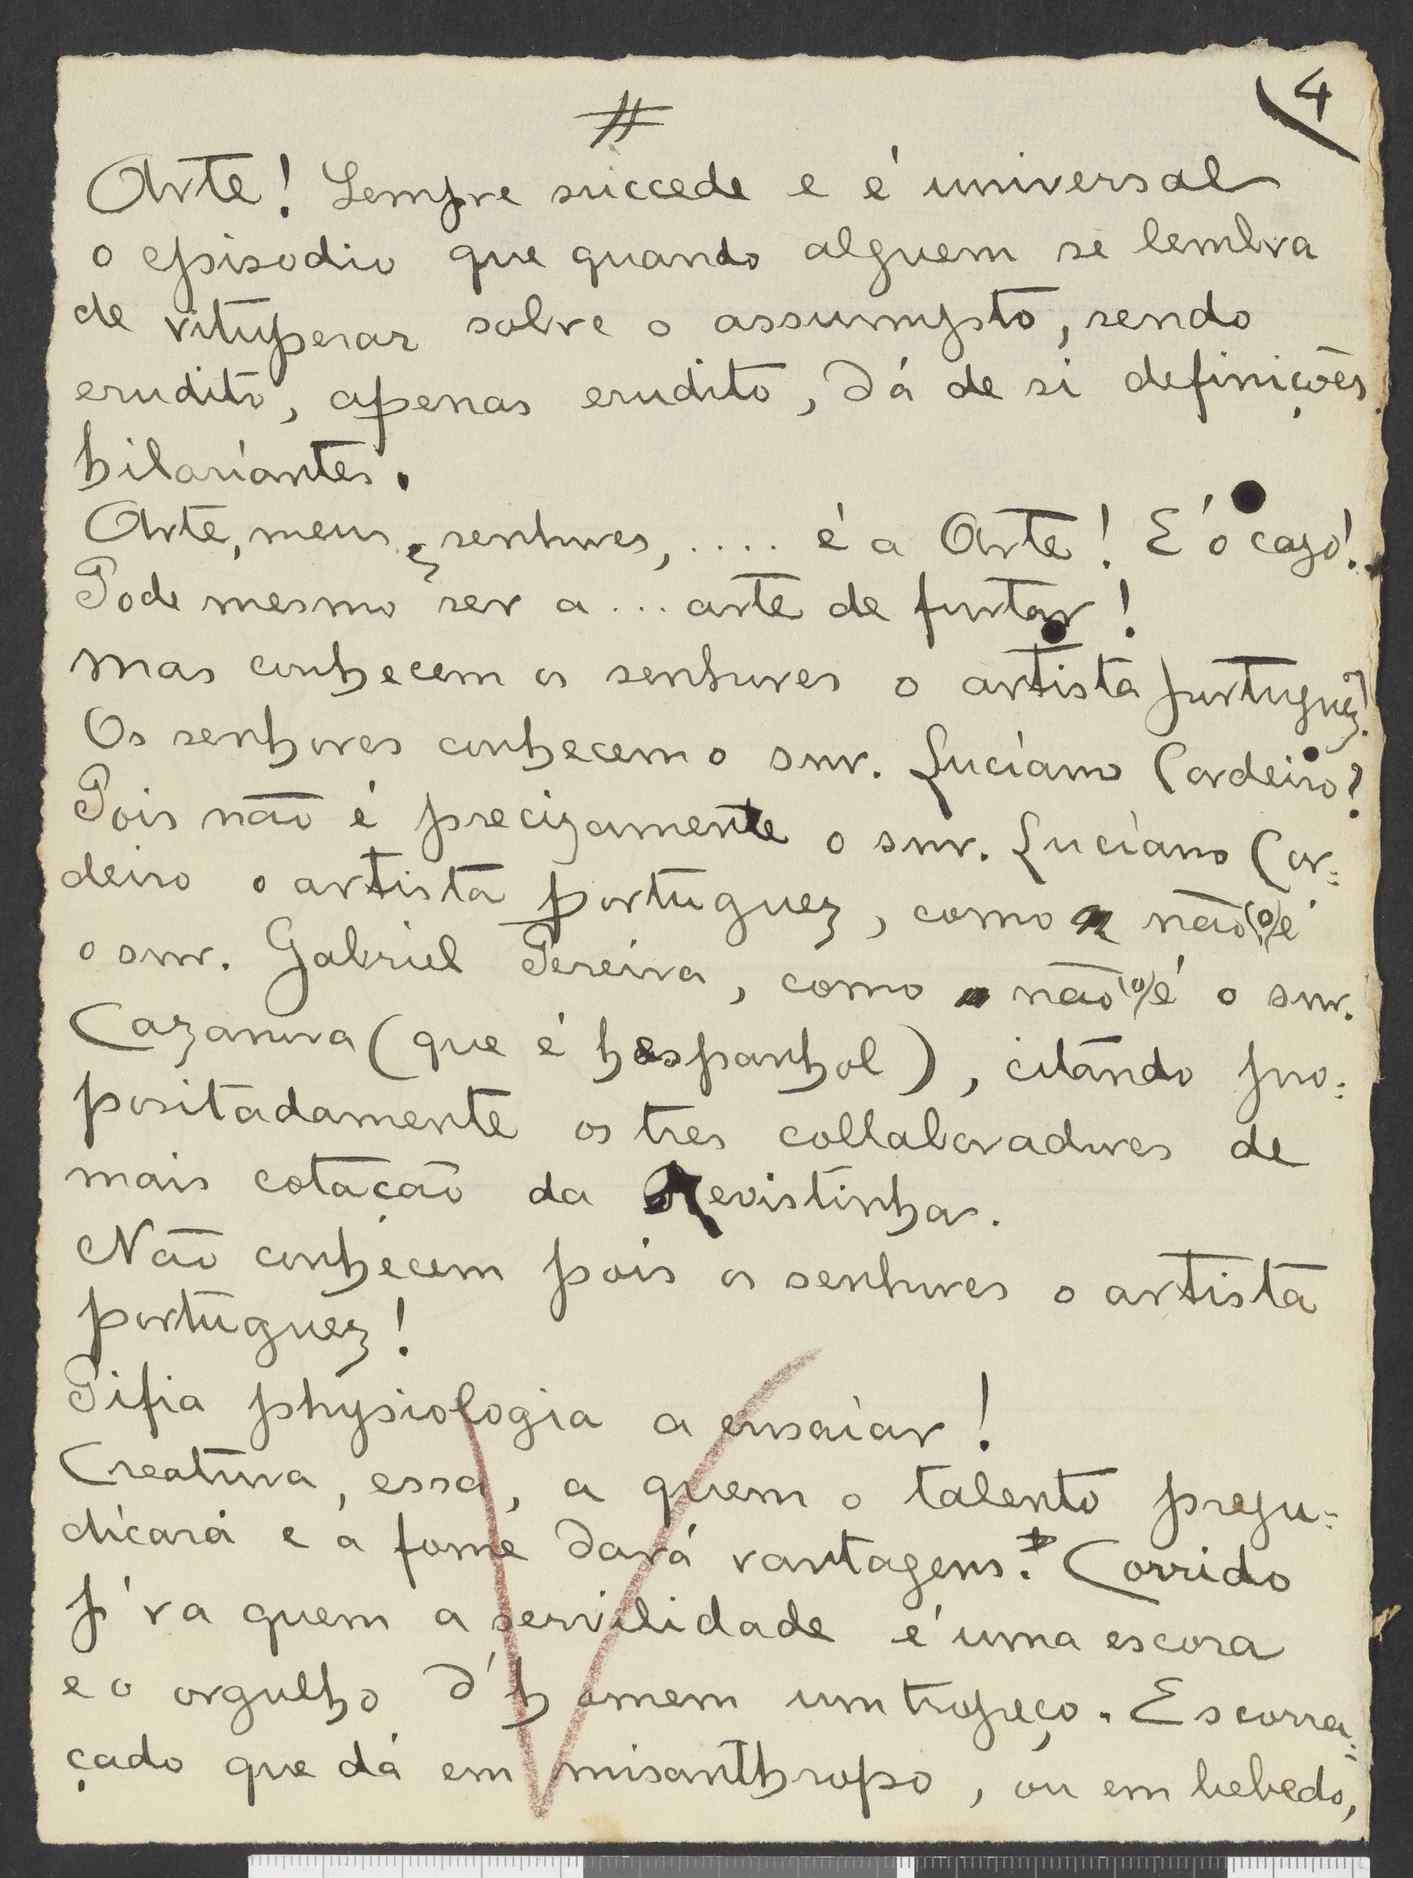 4
#
Arte! Sempre succede e é universal
o episodio que quando alguem se lembra
de vituperar sobre o assumpto, sendo
erudito, apenas erudito, dá de si definições
hilariantes.
Arte, meus senhores, ..... é a Arte! E' o cazo!..
Pode mesmo ser a ... arte de furtar!
Mas conhecem os senhores o artista portuguez?
Os senhores conhecem o snr. Luciano Cordeiro?
Pois não é precizamente o snr. Luciano Cor=
deiro o artista portuguez, como não (o) é
o snr. Gabriel Pereira, como não (o) é o snr.
Cazanova (que é hespanhol), citando pro=
positadamente os tres collaboradores de
mais cotação da Revistinha.
Não conhecem pois os senhores o artista
portuguez!
Pifia physiologia a ensaiar!
Creatura, essa, a quem o talento preju=
dicará e a fome dará vantagens. Corrido
p'ra quem a servilidade é uma escora
e o orgulho d'homem um tropeço. Escorra=
çado que dá em misanthropo, ou em bebedo,